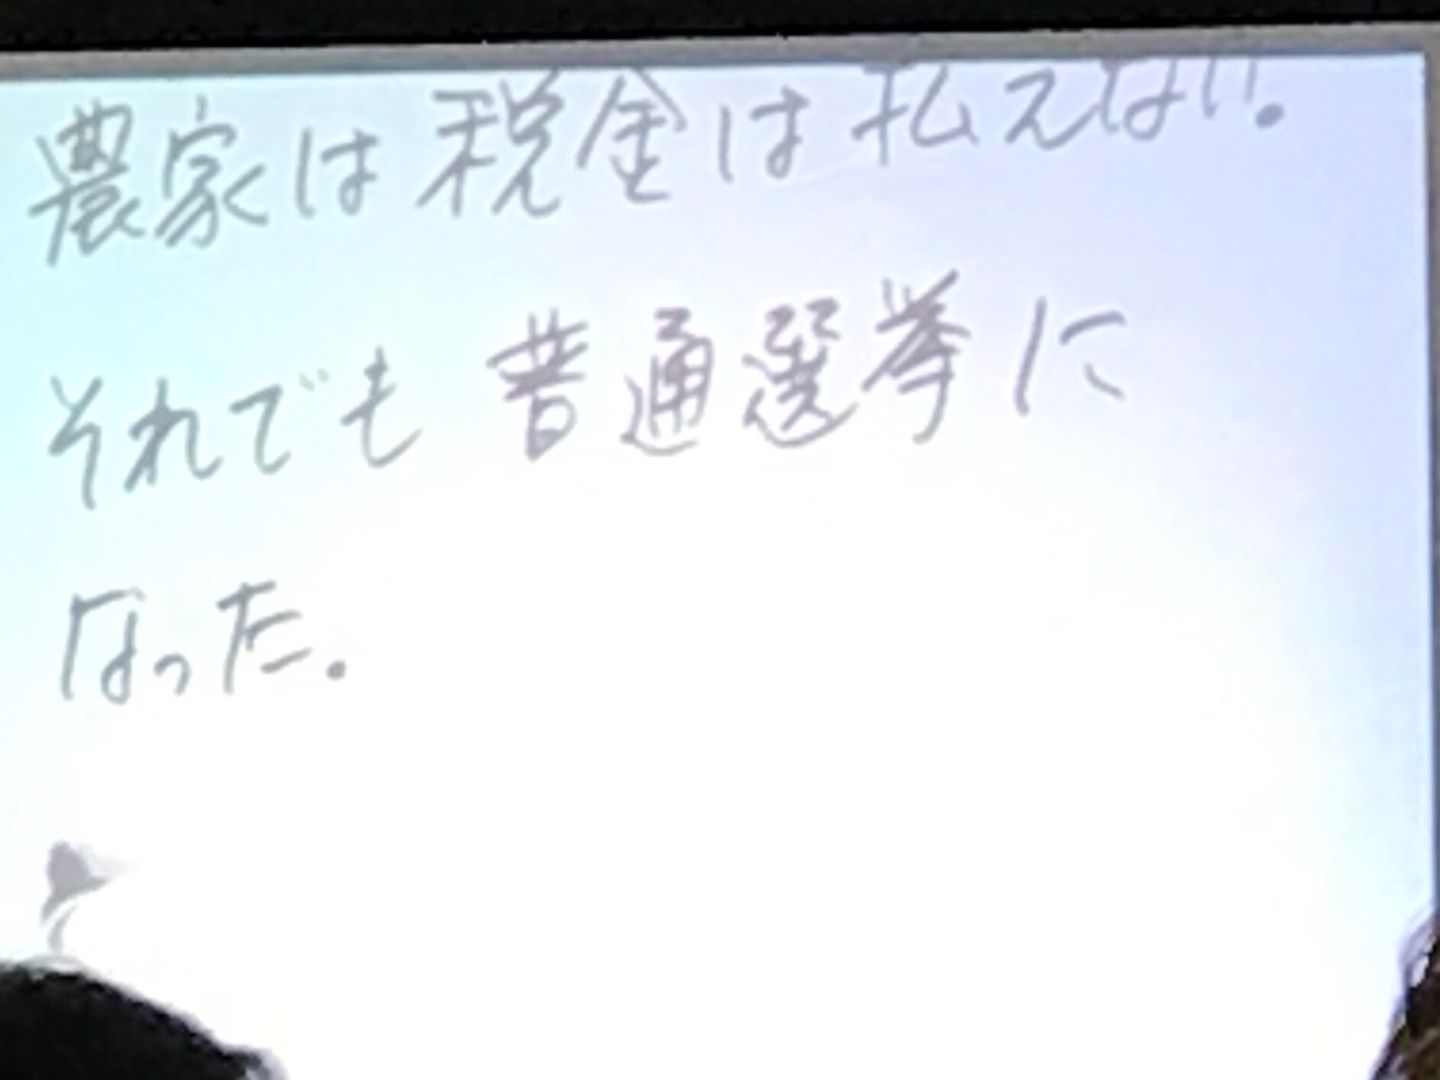 農家は税金は払えない。
それでも普通選挙に
なった。